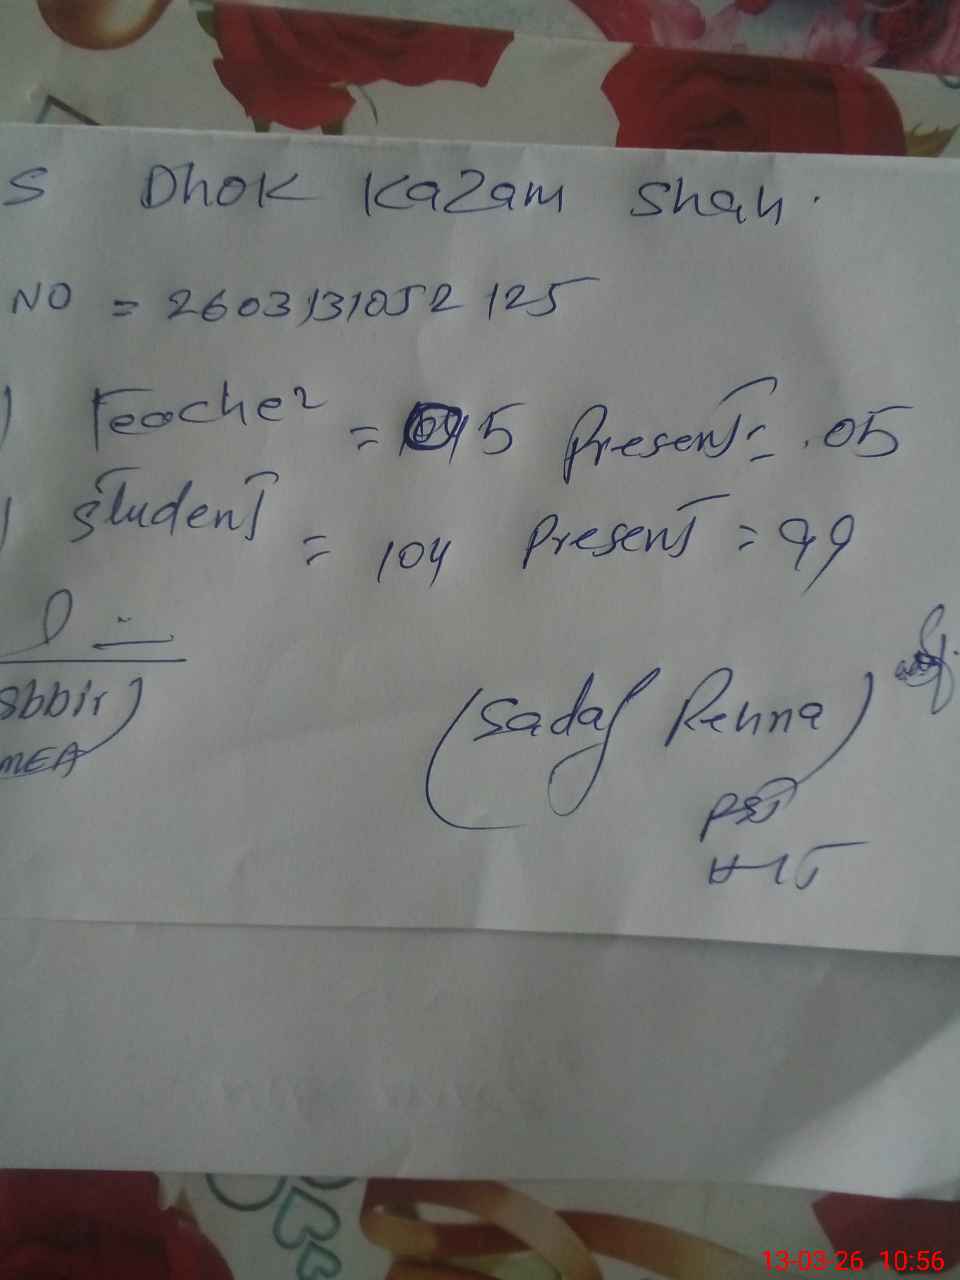 S Dhok Kazam Shah.
NO = 2603131052125
) Teacher = 5 Present = .05
) Student = 104 Present = 99
Sbbir)
MEA
(Sadaf Rehna)
PST
HT
13-03-26 10:56